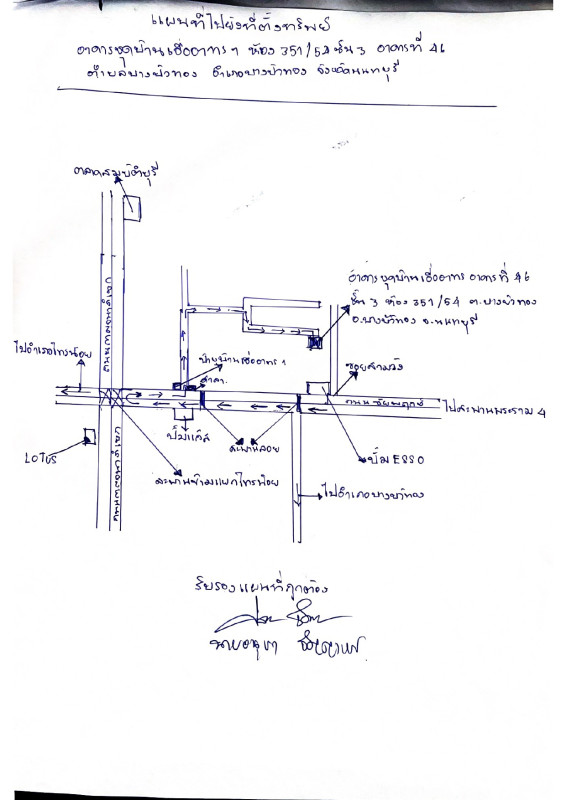 แผนที่ไปยังที่ตั้งทรัพย์
อาคารชุดบ้านเอื้ออาทร ๆ ห้อง 351/54 ชั้น 3 อาคารที่ 46
ตำบลบางบัวทอง อำเภอบางบัวทอง จังหวัดนนทบุรี
ตลาดสมบัติบุรี
อาคารชุดบ้านเอื้ออาทร อาคารที่ 46
ชั้น 3 ห้อง 351/54 ต.บางบัวทอง
อ.บางบัวทอง จ.นนทบุรี
ไปอำเภอไทรน้อย
ป้ายบ้านเอื้ออาทร ๆ
ศาลา
ซอยสามวัง
ถนนชัยพฤกษ์
ไปสะพานพระราม 4
LOTUS
ปั๊มแก๊ส
สะพานลอย
ปั๊ม ESSO
สะพานข้ามแยกไทรน้อย
ไปอำเภอบางบัวทอง
รับรองแผนที่ถูกต้อง